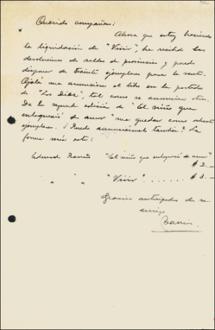 Querido compañero:
Ahora que estoy haciendo
la liquidación de "Vivir", he recibido las
devoluciones de de provincia y puedo
disponer de treinta ejemplares para la venta.
Ojalá me anuncien el libro en la portada
de "Los Días", tal como se anuncian otros.
De la segunda edición de "El niño que
enloqueció de amor" me quedan como
ejemplares. ¿Puede anunciarse también? La
forma sería esta:
Eduardo Barrios "El niño que enloqueció de amor"
$ 2.-
" " "Vivir" ..... $ 3.-
Gracias anticipadas de su
amigo
Barrios